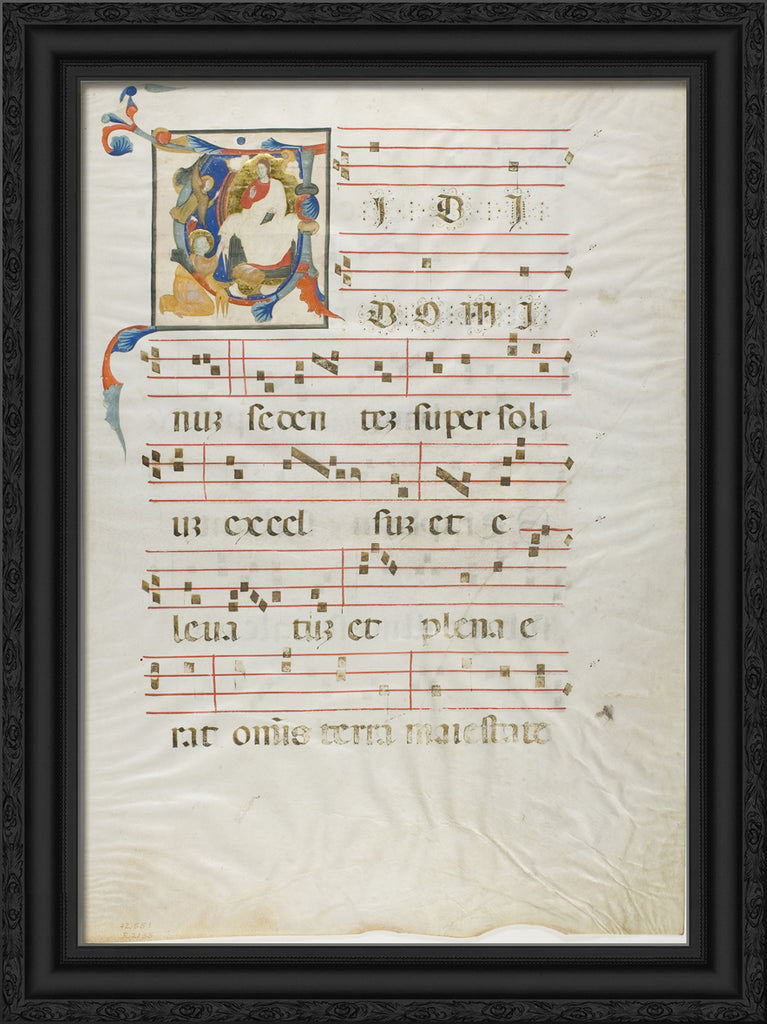 I D I
D O M I
nuz seden tez super soli
uz excel suz et e
leua tuz et plena e
rat om̄is terra maiestate